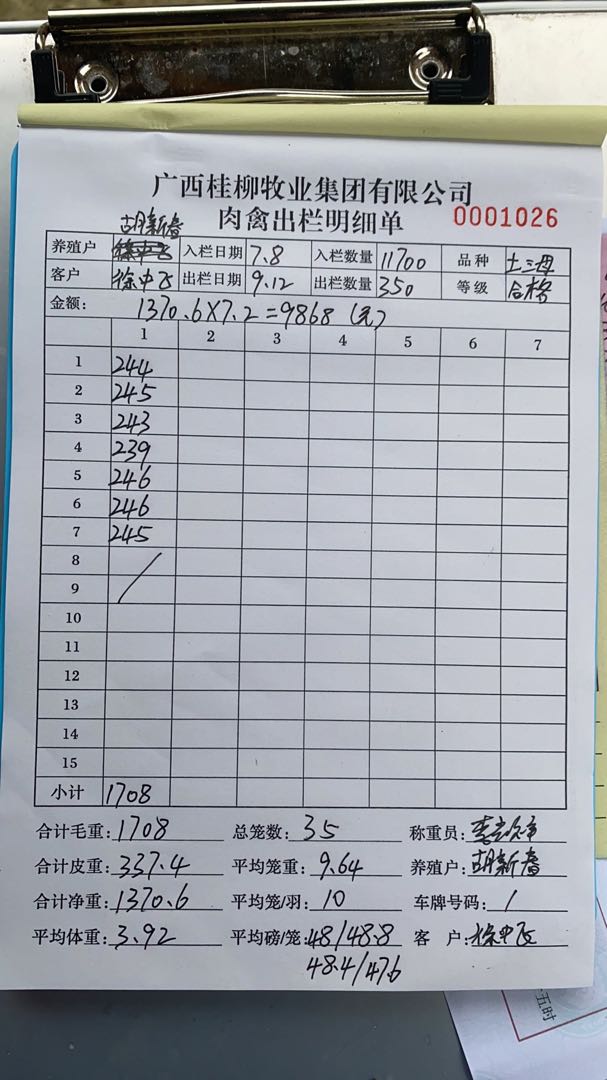 广西桂柳牧业集团有限公司
肉禽出栏明细单 0001026
胡新春
养殖户 徐中飞 入栏日期 7.8 入栏数量 11700 品种 土三母
客户 徐中飞 出栏日期 9.12 出栏数量 350 等级 合格
金额: 1370.6×7.2=9868(元)
1 2 3 4 5 6 7
1 244
2 245
3 243
4 239
5 246
6 246
7 245
8
9
10
11
12
13
14
15
小计 1708
合计毛重: 1708 总笼数: 35 称重员:
合计皮重: 337.4 平均笼重: 9.64 养殖户: 胡新春
合计净重: 1370.6 平均笼/羽: 10 车牌号码: /
平均体重: 3.92 平均磅/笼: 48/48.8 客 户: 徐中飞
48.4/47.6
五时